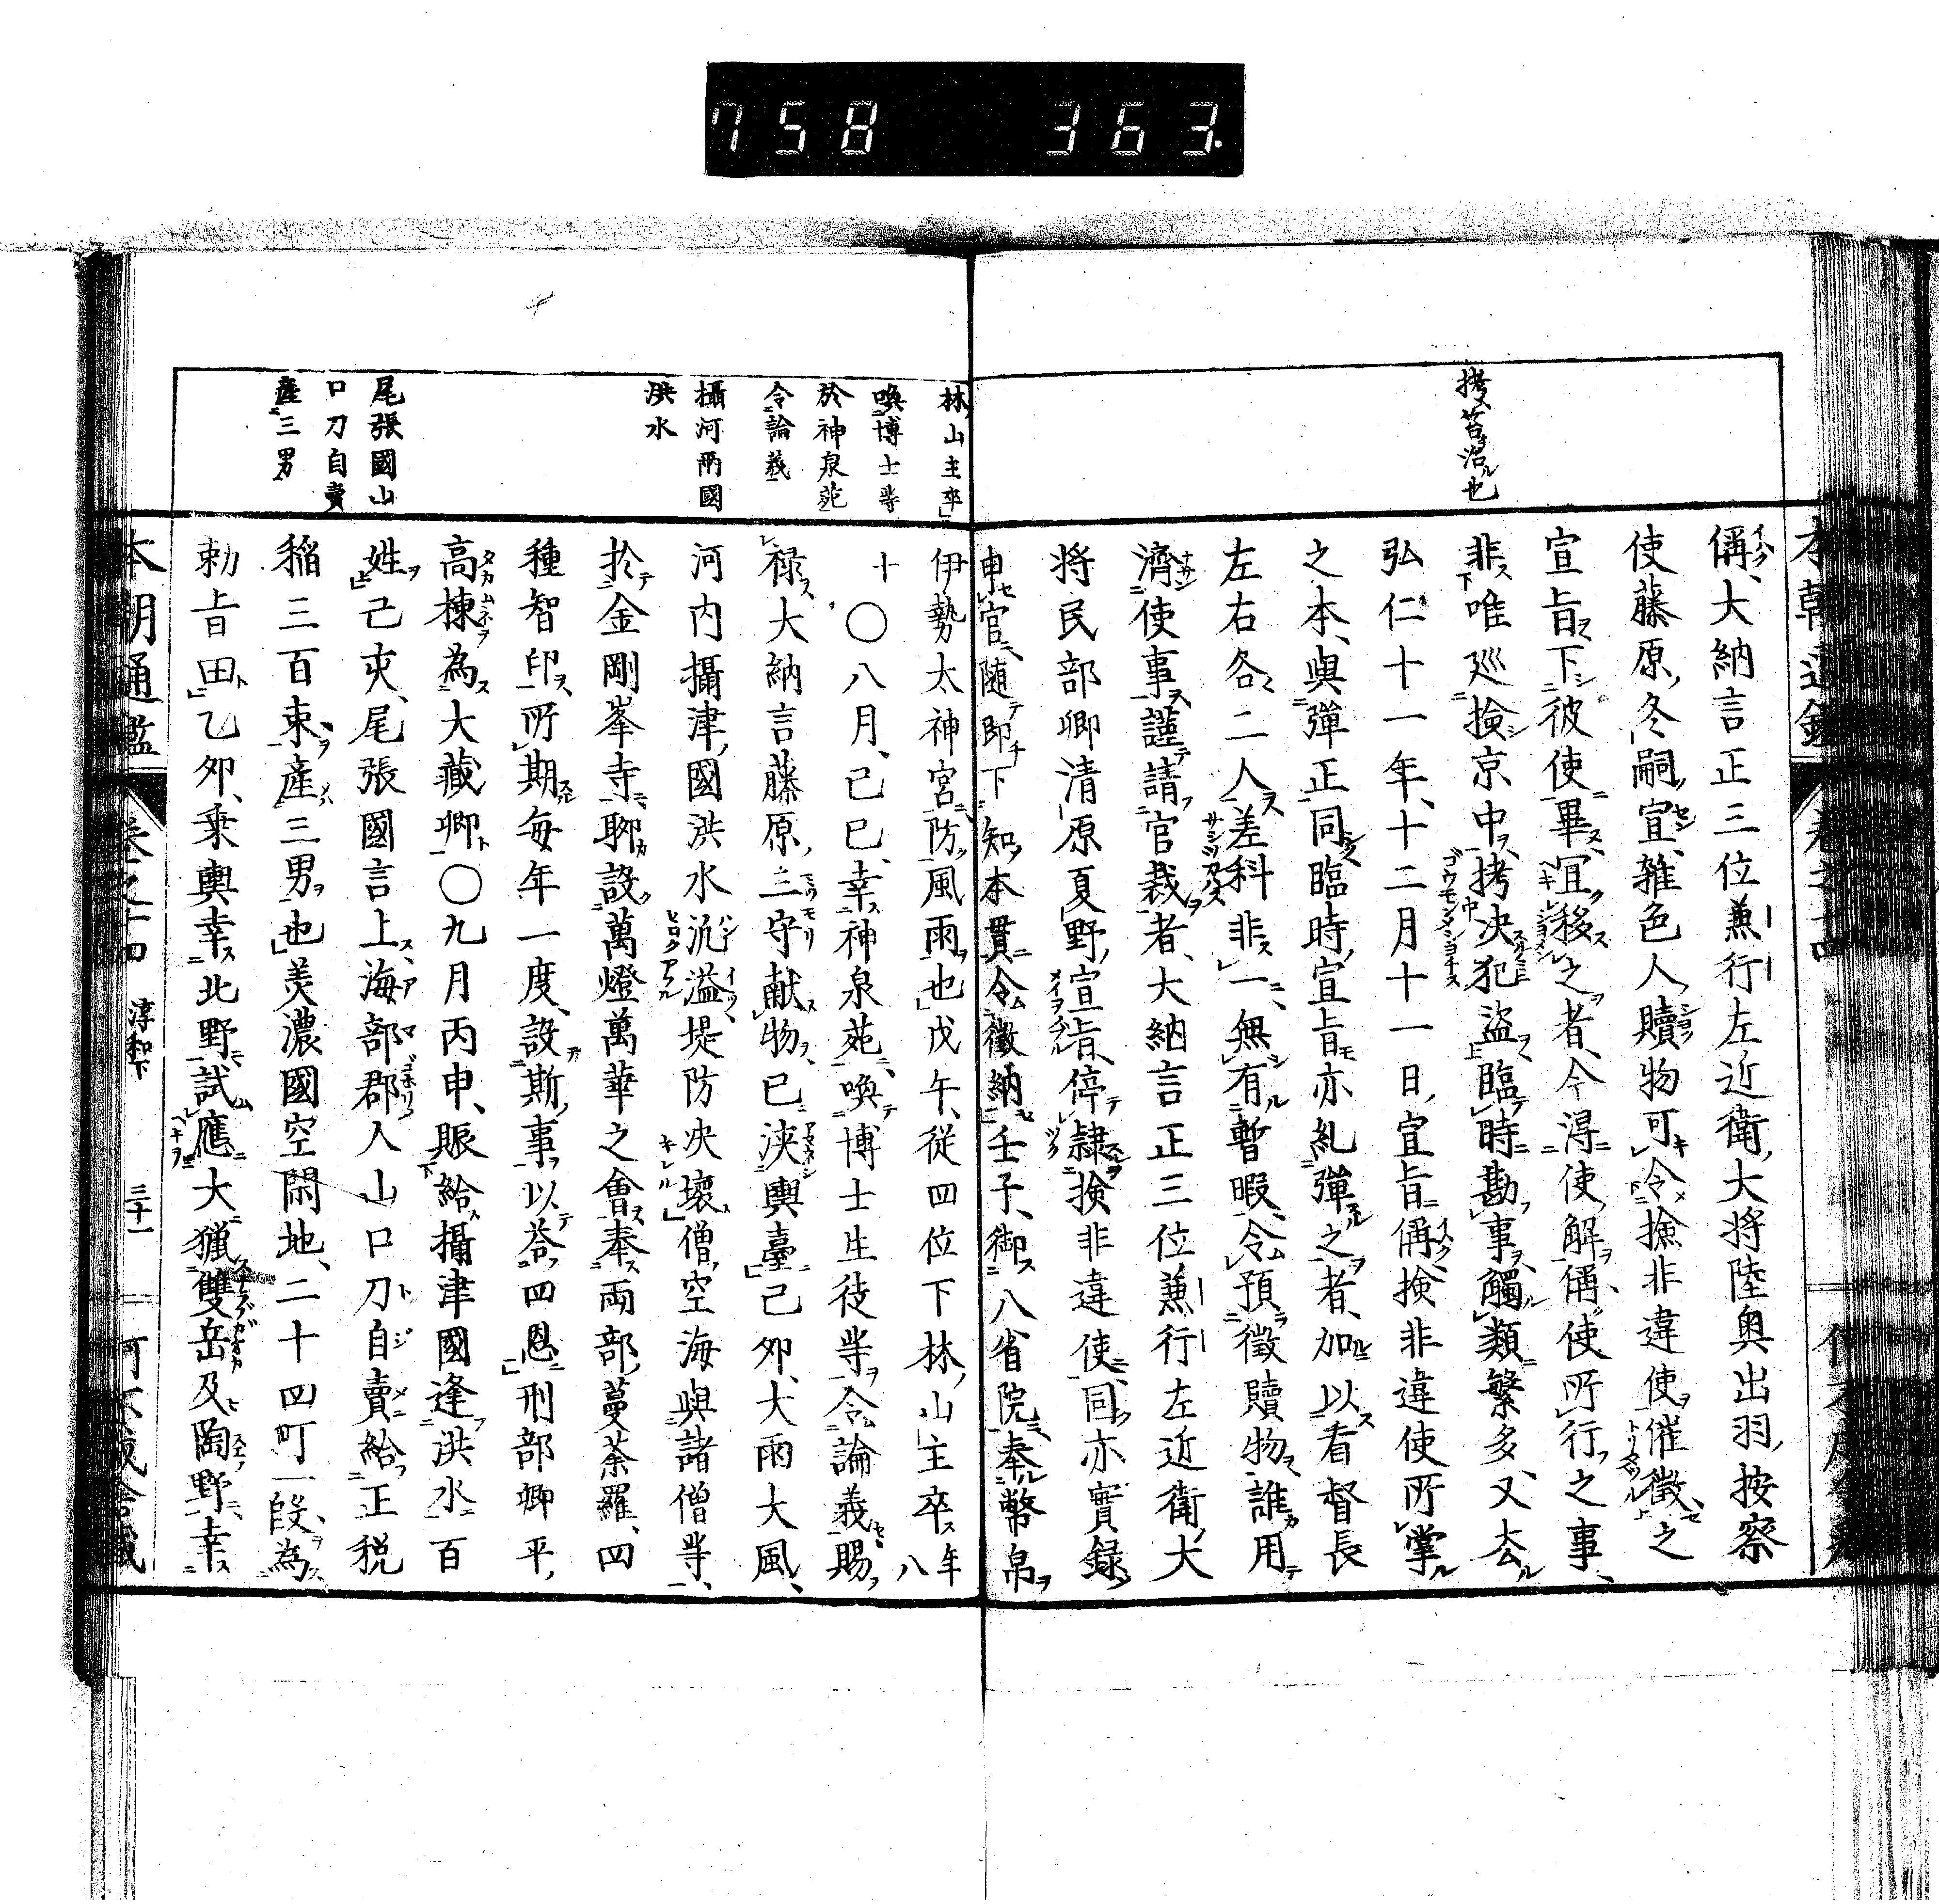 758 363.
拷荅治也
偁、大納言正三位兼行左近衛大將陸奥出羽按察
使藤原冬嗣宣、雑色人贖物可令撿非違使催徴之
宣旨下彼使畢、宜移之者、今得使解偁、使所行之事、
非唯巡撿京中拷決犯盗、臨時勘事、觸類繁多、又去
弘仁十一年、十二月十一日、宣旨偁、撿非違使所掌
之本、與彈正同、臨時宣旨亦糺彈之者、加以看督長
左右各二人差科非一、無有暫暇、令預徴贖物、誰用
濟使事、謹請官裁者、大納言正三位兼行左近衛大
將民部卿清原夏野宣旨、停隷撿非違使、同亦實録
申官、随即下知本貫令徴納、壬子、御八省院奉幣帛
林山主卒
喚博士等
於神泉苑
令論義
攝河兩國
洪水
尾張國山
口刀自賣
産三男
伊勢太神宮、防風雨也、戊午、従四位下林山主卒年八
十〇八月、己巳、幸神泉苑、喚博士生徒等令論義、賜
禄、大納言藤原三守献物、已浹輿臺、己夘、大雨大風、
河内攝津國洪水汎溢堤防决壊、僧空海與諸僧等、
於金剛峯寺、聊設萬燈萬華之會、奉両部蔓荼羅、四
種智印、所期毎年一度、設斯事、以荅四恩、刑部卿平
高棟為大藏卿〇九月丙申、賑給攝津國逢洪水百
姓、己亥、尾張國言上、海部郡人山口刀自賣給正税
稲三百束、産三男也、美濃國空閑地、二十四町一段、為
勅旨田、乙夘、乗輿幸北野、試應大獵雙岳及陶野、幸
本朝通鑑 卷之十四 淳和下 三十一